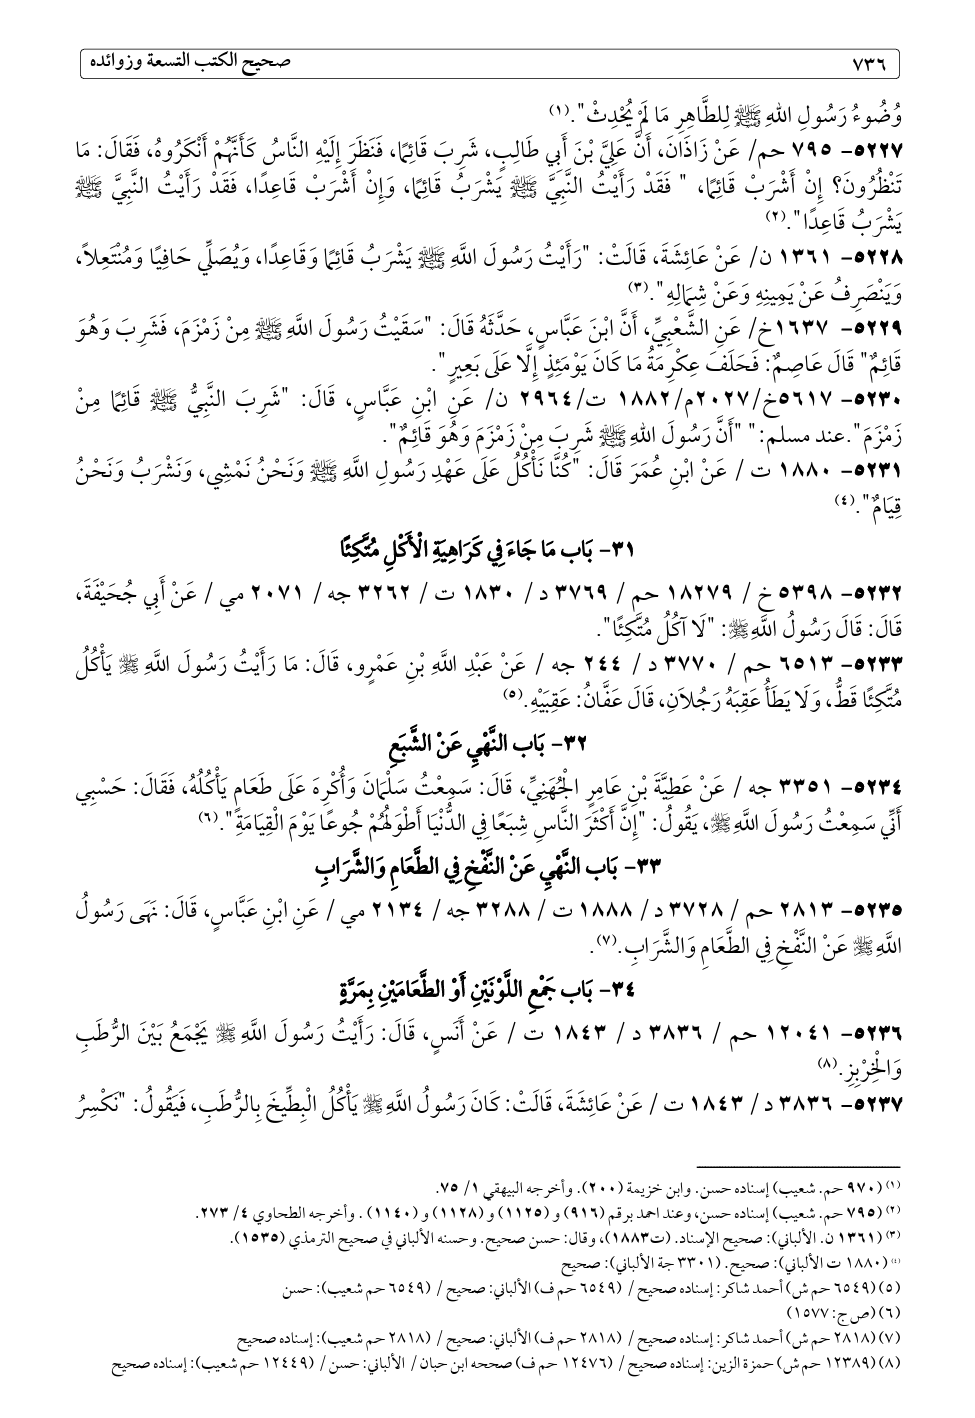 ٧٣٦
صحيح الكتب التسعة وزوائده
وُضُوءُ رَسُولِ اللهِ ﷺ لِلطَّاهِرِ مَا لَمْ يُحْدِثْ".(١)
٥٢٢٧- ٧٩٥ حم/ عَنْ زَاذَانَ، أَنَّ عَلِيَّ بْنَ أَبِي طَالِبٍ، شَرِبَ قَائِمًا، فَنَظَرَ إِلَيْهِ النَّاسُ كَأَنَّهُمْ أَنْكَرُوهُ، فَقَالَ: مَا
تَنْظُرُونَ؟ إِنْ أَشْرَبْ قَائِمًا، " فَقَدْ رَأَيْتُ النَّبِيَّ ﷺ يَشْرَبُ قَائِمًا، وَإِنْ أَشْرَبْ قَاعِدًا، فَقَدْ رَأَيْتُ النَّبِيَّ ﷺ
يَشْرَبُ قَاعِدًا".(٢)
٥٢٢٨- ١٣٦١ ن/ عَنْ عَائِشَةَ، قَالَتْ: "رَأَيْتُ رَسُولَ اللَّهِ ﷺ يَشْرَبُ قَائِمًا وَقَاعِدًا، وَيُصَلِّي حَافِيًا وَمُنْتَعِلاً،
وَيَنْصَرِفُ عَنْ يَمِينِهِ وَعَنْ شِمَالِهِ".(٣)
٥٢٢٩- ١٦٣٧خ/ عَنِ الشَّعْبِيِّ، أَنَّ ابْنَ عَبَّاسٍ، حَدَّثَهُ قَالَ: "سَقَيْتُ رَسُولَ اللَّهِ ﷺ مِنْ زَمْزَمَ، فَشَرِبَ وَهُوَ
قَائِمٌ" قَالَ عَاصِمٌ: فَحَلَفَ عِكْرِمَةُ مَا كَانَ يَوْمَئِذٍ إِلَّا عَلَى بَعِيرٍ".
٥٢٣٠- ٥٦١٧خ/٢٠٢٧م/١٨٨٢ ت/٢٩٦٤ ن/ عَنِ ابْنِ عَبَّاسٍ، قَالَ: "شَرِبَ النَّبِيُّ ﷺ قَائِمًا مِنْ
زَمْزَمَ".عند مسلم:" "أَنَّ رَسُولَ اللهِ ﷺ شَرِبَ مِنْ زَمْزَمَ وَهُوَ قَائِمٌ".
٥٢٣١- ١٨٨٠ ت / عَنْ ابْنِ عُمَرَ قَالَ: "كُنَّا نَأْكُلُ عَلَى عَهْدِ رَسُولِ اللَّهِ ﷺ وَنَحْنُ نَمْشِي، وَنَشْرَبُ وَنَحْنُ
قِيَامٌ".(٤)
٣١- بَاب مَا جَاءَ فِي كَرَاهِيَةِ الْأَكْلِ مُتَّكِئًا
٥٢٣٢- ٥٣٩٨ خ / ١٨٢٧٩ حم / ٣٧٦٩ د / ١٨٣٠ ت / ٣٢٦٢ جه / ٢٠٧١ مي / عَنْ أَبِي جُحَيْفَةَ،
قَالَ: قَالَ رَسُولُ اللَّهِ ﷺ: "لَا آكُلُ مُتَّكِئًا".
٥٢٣٣- ٦٥١٣ حم / ٣٧٧٠ د / ٢٤٤ جه / عَنْ عَبْدِ اللَّهِ بْنِ عَمْرٍو، قَالَ: مَا رَأَيْتُ رَسُولَ اللَّهِ ﷺ يَأْكُلُ
مُتَّكِئًا قَطُّ، وَلَا يَطَأُ عَقِبَهُ رَجُلاَنِ، قَالَ عَفَّانُ: عَقِبَيْهِ.(٥)
٣٢- بَاب النَّهْيِ عَنْ الشَّبَعِ
٥٢٣٤- ٣٣٥١ جه / عَنْ عَطِيَّةَ بْنِ عَامِرٍ الْجُهَنِيِّ، قَالَ: سَمِعْتُ سَلْمَانَ وَأُكْرِهَ عَلَى طَعَامٍ يَأْكُلُهُ، فَقَالَ: حَسْبِي
أَنِّي سَمِعْتُ رَسُولَ اللَّهِ ﷺ، يَقُولُ: "إِنَّ أَكْثَرَ النَّاسِ شِبَعًا فِي الدُّنْيَا أَطْوَلُهُمْ جُوعًا يَوْمَ الْقِيَامَةِ".(٦)
٣٣- بَاب النَّهْيِ عَنْ النَّفْخِ فِي الطَّعَامِ وَالشَّرَابِ
٥٢٣٥- ٢٨١٣ حم / ٣٧٢٨ د / ١٨٨٨ ت / ٣٢٨٨ جه / ٢١٣٤ مي / عَنِ ابْنِ عَبَّاسٍ، قَالَ: نَهَى رَسُولُ
اللَّهِ ﷺ عَنْ النَّفْخِ فِي الطَّعَامِ وَالشَّرَابِ.(٧).
٣٤- بَاب جَمْعِ اللَّوْنَيْنِ أَوْ الطَّعَامَيْنِ بِمَرَّةٍ
٥٢٣٦- ١٢٠٤١ حم / ٣٨٣٦ د / ١٨٤٣ ت / عَنْ أَنَسٍ، قَالَ: رَأَيْتُ رَسُولَ اللَّهِ ﷺ يَجْمَعُ بَيْنَ الرُّطَبِ
وَالْخِرْبِزِ.(٨)
٥٢٣٧- ٣٨٣٦ د/ ١٨٤٣ ت / عَنْ عَائِشَةَ، قَالَتْ: كَانَ رَسُولُ اللَّهِ ﷺ يَأْكُلُ الْبِطِّيخَ بِالرُّطَبِ، فَيَقُولُ: "نَكْسِرُ
(١) (٩٧٠ حم. شعيب) إسناده حسن. وابن خزيمة (٢٠٠). وأخرجه البيهقي ١/ ٧٥.
(٢) (٧٩٥ حم. شعيب) إسناده حسن، وعند احمد برقم (٩١٦) و (١١٢٥) و (١١٢٨) و (١١٤٠) . وأخرجه الطحاوي ٤/ ٢٧٣.
(٣) (١٣٦١ ن. الألباني): صحيح الإسناد. (ت١٨٨٣)، وقال: حسن صحيح. وحسنه الألباني في صحيح الترمذي (١٥٣٥).
(٤) (١٨٨٠ ت الألباني): صحيح. (٣٣٠١ جة الألباني): صحيح
(٥) (٦٥٤٩ حم ش) أحمد شاكر: إسناده صحيح / (٦٥٤٩ حم ف) الألباني: صحيح / (٦٥٤٩ حم شعيب): حسن
(٦) (ص ج: ١٥٧٧)
(٧) (٢٨١٨ حم ش) أحمد شاكر: إسناده صحيح / (٢٨١٨ حم ف) الألباني: صحيح / (٢٨١٨ حم شعيب): إسناده صحيح
(٨) (١٢٣٨٩ حم ش) حمزة الزين: إسناده صحيح / (١٢٤٧٦ حم ف) صححه ابن حبان / الألباني: حسن / (١٢٤٤٩ حم شعيب): إسناده صحيح